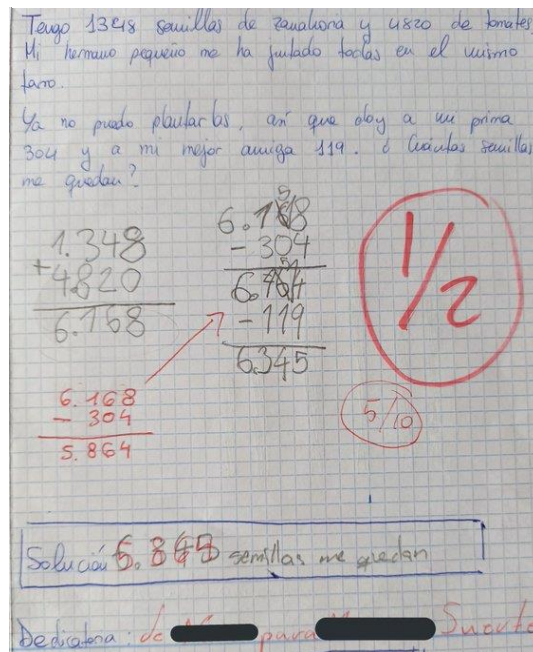 Tengo 1348 semillas de zanahoria y 4820 de tomates.
Mi hermano pequeño me ha juntado todas en el mismo
tarro.
Ya no puedo plantarlas, así que doy a mi prima
304 y a mi mejor amiga 119. ¿Cuántas semillas
me quedan?
1.348
+ 4.820
6.168
6.168
- 304
- 119
6.345
1/2
6.168
- 304
5.864
5/10
Solución semillas me quedan
Dedicatoria: de para